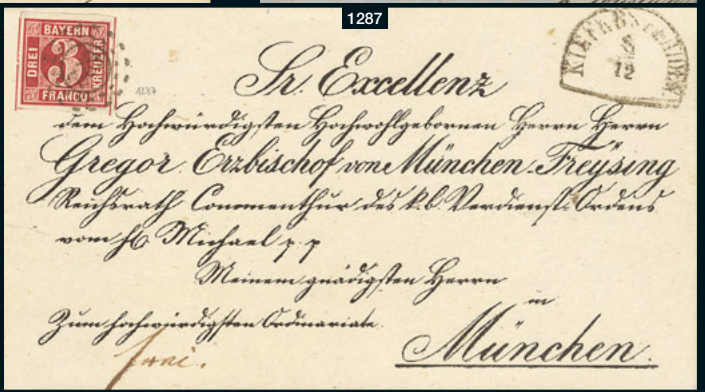 1287
BAYERN
DREI 3 KREUZER
FRANCO
1287
KIEFERSFELDEN
8
12
Sr. Excellenz
dem Hochwürdigsten Hochwohlgebornen Herrn Herrn
Gregor Erzbischof von München-Freysing
Reichsrath Commenthur des k.b. Verdienst-Ordens
vom hl. Michael p. p
Meinem gnädigsten Herrn
in
Zum hochwürdigsten Ordinariate.
München.
frei.